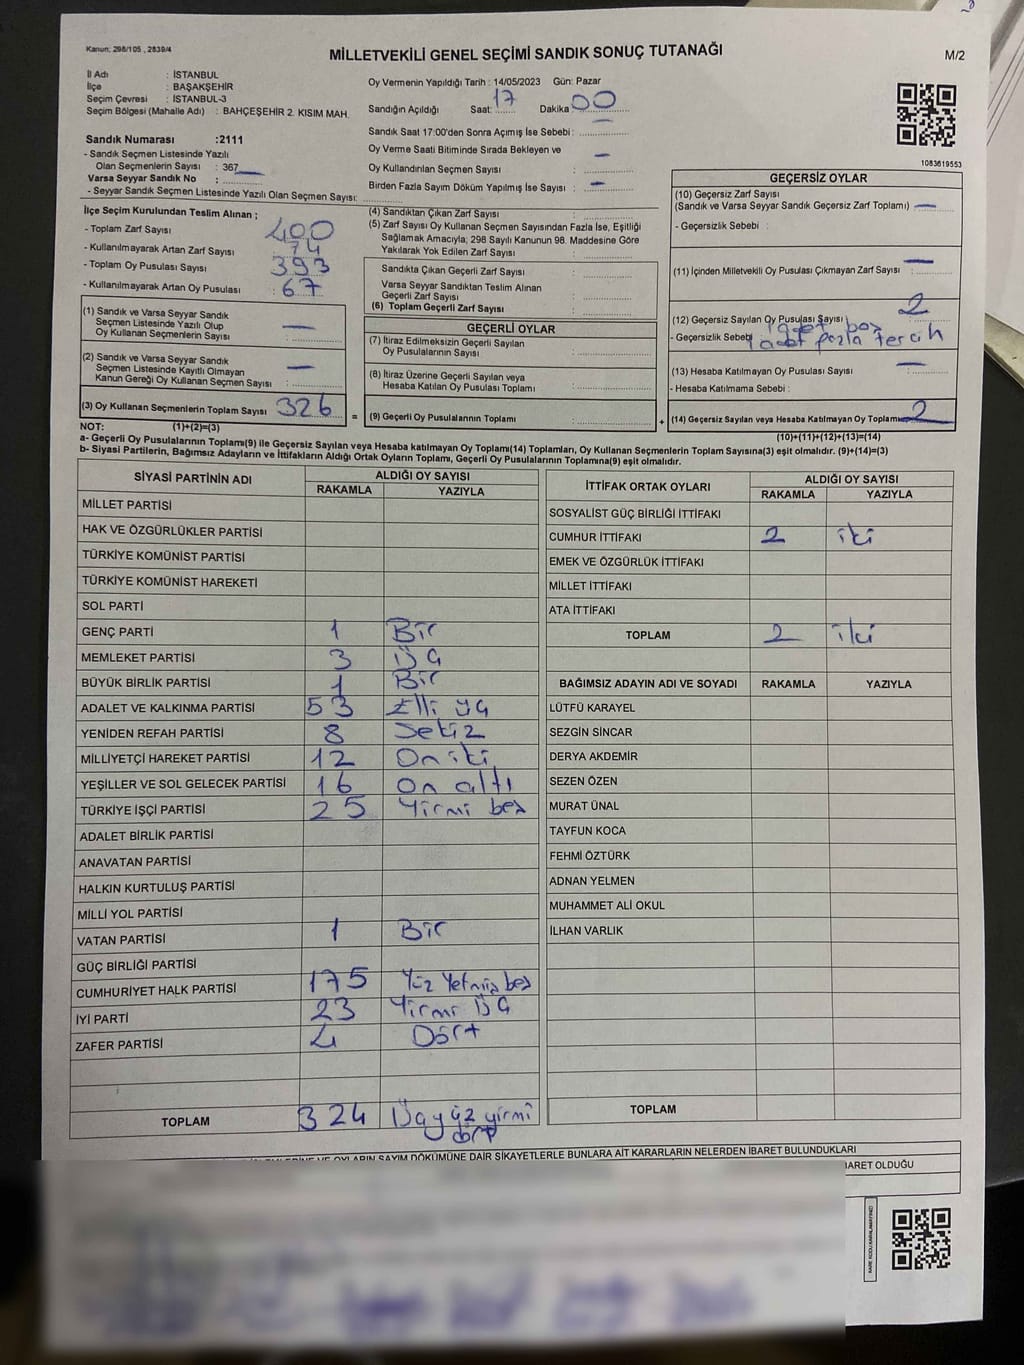 Kanun: 298/105 , 2839/4
MİLLETVEKİLİ GENEL SEÇİMİ SANDIK SONUÇ TUTANAĞI
M/2
İl Adı : İSTANBUL
İlçe : BAŞAKŞEHİR
Seçim Çevresi : İSTANBUL-3
Seçim Bölgesi (Mahalle Adı) : BAHÇEŞEHİR 2. KISIM MAH.
Sandık Numarası :2111
- Sandık Seçmen Listesinde Yazılı
Olan Seçmenlerin Sayısı : 367
Varsa Seyyar Sandık No :
- Seyyar Sandık Seçmen Listesinde Yazılı Olan Seçmen Sayısı:
Oy Vermenin Yapıldığı Tarih : 14/05/2023 Gün: Pazar
Sandığın Açıldığı Saat: 17 Dakika 00
Sandık Saat 17:00'den Sonra Açımış İse Sebebi :
Oy Verme Saati Bitiminde Sırada Bekleyen ve
Oy Kullandırılan Seçmen Sayısı : —
Birden Fazla Sayım Döküm Yapılmış İse Sayısı : —
1083619553
İlçe Seçim Kurulundan Teslim Alınan ;
- Toplam Zarf Sayısı : 400
- Kullanılmayarak Artan Zarf Sayısı : 74
- Toplam Oy Pusulası Sayısı : 393
- Kullanılmayarak Artan Oy Pusulası : 67
(1) Sandık ve Varsa Seyyar Sandık
Seçmen Listesinde Yazılı Olup
Oy Kullanan Seçmenlerin Sayısı : —
(2) Sandık ve Varsa Seyyar Sandık
Seçmen Listesinde Kayıtlı Olmayan
Kanun Gereği Oy Kullanan Seçmen Sayısı : —
(3) Oy Kullanan Seçmenlerin Toplam Sayısı 326
(4) Sandıktan Çıkan Zarf Sayısı :
(5) Zarf Sayısı Oy Kullanan Seçmen Sayısından Fazla İse, Eşitliği
Sağlamak Amacıyla; 298 Sayılı Kanunun 98. Maddesine Göre
Yakılarak Yok Edilen Zarf Sayısı :
Sandıkta Çıkan Geçerli Zarf Sayısı :
Varsa Seyyar Sandıktan Teslim Alınan
Geçerli Zarf Sayısı :
(6) Toplam Geçerli Zarf Sayısı :
GEÇERLİ OYLAR
(7) İtiraz Edilmeksizin Geçerli Sayılan
Oy Pusulalarının Sayısı :
(8) İtiraz Üzerine Geçerli Sayılan veya
Hesaba Katılan Oy Pusulası Toplamı :
= (9) Geçerli Oy Pusulalarının Toplamı : +
GEÇERSİZ OYLAR
(10) Geçersiz Zarf Sayısı
(Sandık ve Varsa Seyyar Sandık Geçersiz Zarf Toplamı) : —
- Geçersizlik Sebebi :
(11) İçinden Milletvekili Oy Pusulası Çıkmayan Zarf Sayısı : —
(12) Geçersiz Sayılan Oy Pusulası Sayısı : 2
- Geçersizlik Sebebi 1 adet boş
1 adet fazla tercih
(13) Hesaba Katılmayan Oy Pusulası Sayısı : —
- Hesaba Katılmama Sebebi :
(14) Geçersiz Sayılan veya Hesaba Katılmayan Oy Toplamı 2
NOT: (1)+(2)=(3) (10)+(11)+(12)+(13)=(14)
a- Geçerli Oy Pusulalarının Toplamı(9) ile Geçersiz Sayılan veya Hesaba katılmayan Oy Toplamı(14) Toplamları, Oy Kullanan Seçmenlerin Toplam Sayısına(3) eşit olmalıdır. (9)+(14)=(3)
b- Siyasi Partilerin, Bağımsız Adayların ve İttifakların Aldığı Ortak Oyların Toplamı, Geçerli Oy Pusulalarının Toplamına(9) eşit olmalıdır.
SİYASİ PARTİNİN ADI ALDIĞI OY SAYISI
RAKAMLA YAZIYLA
MİLLET PARTİSİ
HAK VE ÖZGÜRLÜKLER PARTİSİ
TÜRKİYE KOMÜNİST PARTİSİ
TÜRKİYE KOMÜNİST HAREKETİ
SOL PARTİ
GENÇ PARTİ 1 Bir
MEMLEKET PARTİSİ 3 Üç
BÜYÜK BİRLİK PARTİSİ 1 Bir
ADALET VE KALKINMA PARTİSİ 53 Elli üç
YENİDEN REFAH PARTİSİ 8 Sekiz
MİLLİYETÇİ HAREKET PARTİSİ 12 On iki
YEŞİLLER VE SOL GELECEK PARTİSİ 16 On altı
TÜRKİYE İŞÇİ PARTİSİ 25 Yirmi beş
ADALET BİRLİK PARTİSİ
ANAVATAN PARTİSİ
HALKIN KURTULUŞ PARTİSİ
MİLLİ YOL PARTİSİ
VATAN PARTİSİ 1 Bir
GÜÇ BİRLİĞİ PARTİSİ
CUMHURİYET HALK PARTİSİ 175 Yüz Yetmiş beş
İYİ PARTİ 23 Yirmi Üç
ZAFER PARTİSİ 4 Dört
TOPLAM 324 Üçyüz yirmi
dört
İTTİFAK ORTAK OYLARI ALDIĞI OY SAYISI
RAKAMLA YAZIYLA
SOSYALİST GÜÇ BİRLİĞİ İTTİFAKI
CUMHUR İTTİFAKI 2 iki
EMEK VE ÖZGÜRLÜK İTTİFAKI
MİLLET İTTİFAKI
ATA İTTİFAKI
TOPLAM 2 iki
BAĞIMSIZ ADAYIN ADI VE SOYADI RAKAMLA YAZIYLA
LÜTFÜ KARAYEL
SEZGİN SİNCAR
DERYA AKDEMİR
SEZEN ÖZEN
MURAT ÜNAL
TAYFUN KOCA
FEHMİ ÖZTÜRK
ADNAN YELMEN
MUHAMMET ALİ OKUL
İLHAN VARLIK
TOPLAM
VE OYLARIN SAYIM DÖKÜMÜNE DAİR ŞİKAYETLERLE BUNLARA AİT KARARLARIN NELERDEN İBARET BULUNDUKLARI
OLDUĞU